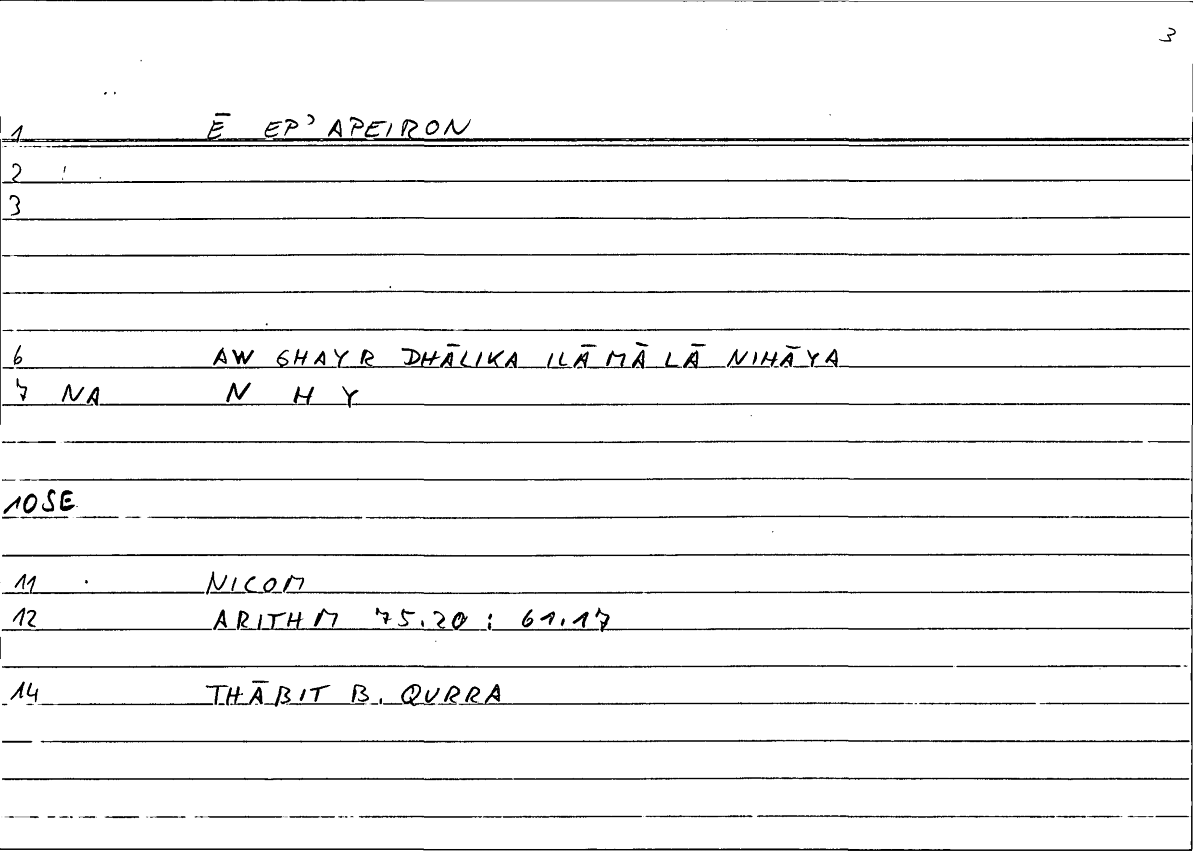 3
1 Ē EP' APEIRON
2
3
6 AW GHAYR DHĀLIKA ILĀ MĀ LĀ NIHĀYA
7 NA N H Y
10 SE
11 NICOM
12 ARITHM 75.20 : 61.17
14 THĀBIT B. QURRA